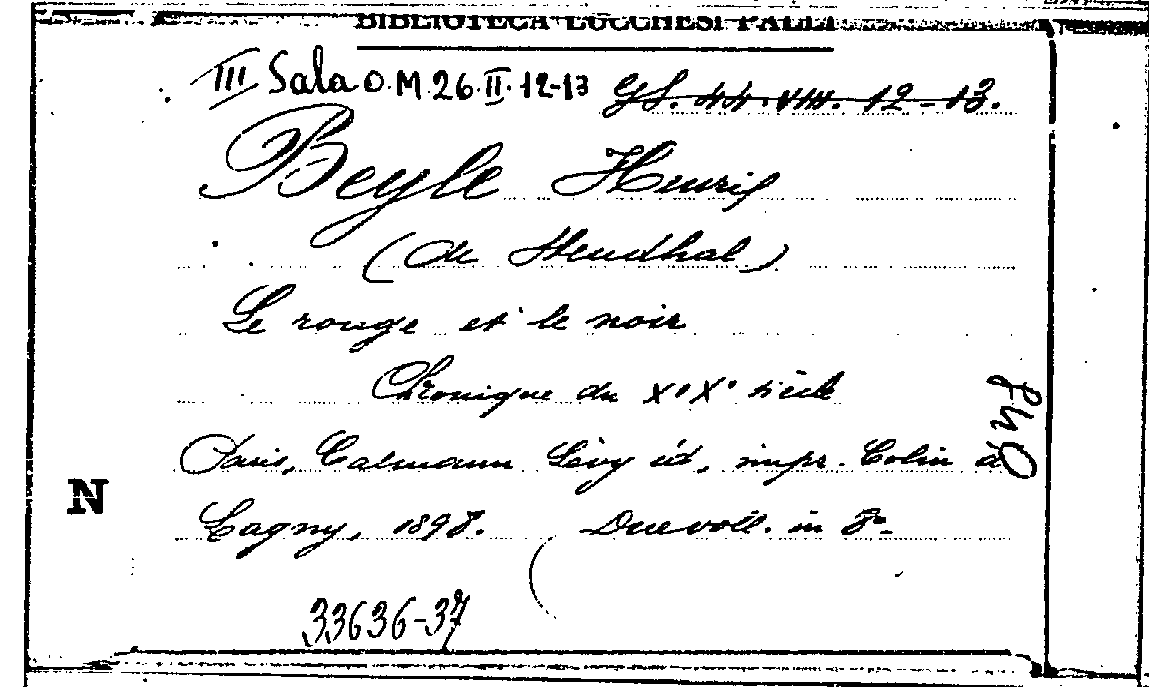 BIBLIOTECA LUCCHESI PALLI
III Sala O.M.26.II.12-13 GS. 44. VIII. 12-13.
Beyle Henri
(de Stendhal)
Le rouge et le noir
Chronique du XIXe siècle
Paris, Calmann Lévy éd, impr. Colin à
N
Lagny, 1898. Due voll. in 8º
33636-37